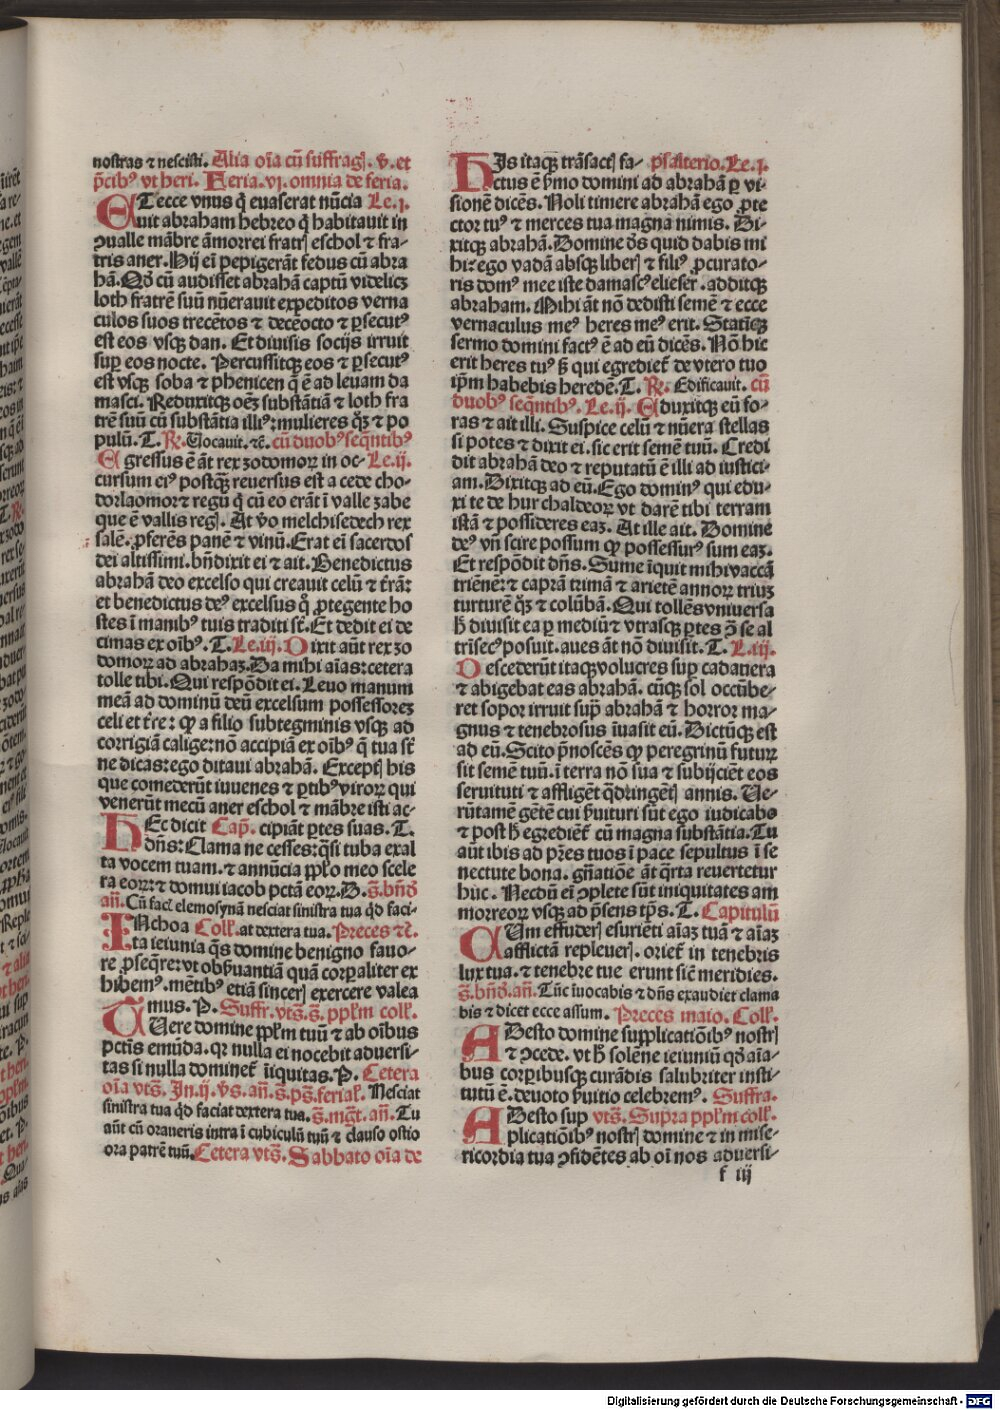 nostras ⁊ nescisti. Alia oīa cū suffragꝭ. v̄. et
p̄cibꝰ vt heri. Feria. vj. omnia de feria.
ET ecce vnus q̄ euaserat nūcia Le. j.
uit abraham hebreo q̇ habitauit in
ꝯualle mābre āmorrei fratrꝭ eschol ⁊ fra-
tris aner. Hij eī pepigerāt fedus cū abra
hā. Qḋ cū audisset abrahā captū videlicꝫ
loth fratrē suū nūerauit expeditos verna
culos suos trecētos ⁊ decēocto ⁊ ꝑsecutꝰ
est eos vsqꝫ dan. Et diuisis socijs irruit
suꝑ eos nocte. Percussitqꝫ eos ⁊ ꝑsecutꝰ
est vsqꝫ soba ⁊ phenicen q̄ ē ad leuam da
masci. Reduxitqꝫ oēꝫ substātiā ⁊ loth fra
trē suū cū substātia illiꝰ: mulieres q̊ꝫ ⁊ po
pulū. T. ℟. Uocauit. ⁊c̄. cū duobꝰ seq̄ntibꝰ
Egressus ē āt rex zodomoꝝ in oc- Le. ij.
cursum eiꝰ postqꝫ̄ reuersus est a cede cho-
dorlaomor ⁊ regū q̇ cū eo erāt ī valle zabe
que ē vallis regꝭ. At v̊o melchisedech rex
salē. ꝓferēs panē ⁊ vinū. Erat eī sacerdos
dei altissimi. bn̄dixit ei ⁊ ait. Benedictus
abrahā deo excelso qui creauit celū ⁊ t̄rā:
et benedictus deꝰ excelsus q̊ ꝓtegente ho
stes ī manibꝰ tuis traditi st̄. Et dedit ei de
cimas ex oībꝰ. T. Le. iij. Dixit aūt rex zo
domoꝝ ad abrahaꝫ. Da mihi aīas: cetera
tolle tibi. Qui respōdit ei. Leuo manum
meā ad dominū deū excelsum possessoreꝫ
celi et t̄re: ꝙ a filio subtegminis vsqꝫ ad
corrigiā calige: nō accipiā et oībꝰ q̄ tua st̄
ne dicas: ego ditaui abrahā. Exceptꝭ his
que comederūt iuuenes ⁊ ꝑtibꝰ viroꝝ qui
venerūt mecū aner eschol ⁊ mābre isti ac-
HEc dicit Cap̄. cipiāt ꝑtes suas. T.
dn̄s: Clama ne cesses: q̄si tuba exal
ta vocem tuam. ⁊ annūcia pplo meo scele
ra eoꝝ: ⁊ domui iacob pctā eoꝝ. D. s̄. bn̄d̄
an̄. Cū facꝭ elemosynā nesciat sinistra tua qd̄ faci-
INchoa Coll̄. at dextera tua. Preces ⁊c̄.
ta ieiunia q̄s domine benigno fauo-
re ꝓseq̄re: vt obẜuantiā quā corꝑaliter ex
hibemꝰ. mētibꝰ etiā sincerꝭ exercere valea
mus. P. Suffr̄. vts̄. s̄. ppl̄m coll̄.
TUere domine ppl̄m tuū ⁊ ab oībus
pctīs emūda. qꝛ nulla ei nocebit aduersi-
tas si nulla dominet̄ īiquitas. P. Cetera
oīa vts̄. In. ij. v̄s. an̄. s̄. ps̄. ferial̄. Nesciat
sinistra tua qd̄ faciat dextera tua. s̄. mgt̄. an̄. Tu
aūt cū oraueris intra ī cubiculū tuū ⁊ clauso ostio
ora patrē tuū. Cetera vts̄. Sabbato oīa de
HIs itaqꝫ trāsactꝭ fa- psalterio. Le. j.
ctus ē ẜmo domini ad abrahā ꝑ vi-
sionē dicēs. Noli timere abrahā ego ꝓte
ctor tuꝰ ⁊ merces tua magna nimis. Di-
xitqꝫ abrahā. Domine dē̄s quid dabis mi
hi: ego vadā absqꝫ liberꝭ ⁊ filiꝰ ꝓcurato-
ris domꝰ mee iste damascꝰ elieser. additqꝫ
abraham. Mihi āt nō dedisti semē ⁊ ecce
vernaculus meꝰ heres meꝰ erit. Statīqꝫ
sermo domini factꝰ ē ad eū dicēs. Nō hic
erit heres tuꝰ ß qui egrediet̄ de vtero tuo
ip̄m habebis heredē. T. ℟. Edificauit. cū
duobꝰ seq̄ntibꝰ. Le. ij. Eduxitqꝫ eū fo-
ras ⁊ ait illi. Suspice celū ⁊ nūera stellas
si potes ⁊ dixit ei. sic erit semē tuū. Credi
dit abrahā deo ⁊ reputatū ē illi ad iustici-
am. Dixitqꝫ ad eū. Ego dominꝰ qui edu-
xi te de hur chaldeoꝝ vt darē tibi terram
istā ⁊ possideres eaꝫ. At ille ait. Domine
deꝰ vn̄ scire possum ꝙ possessurꝰ sum eaꝫ.
Et respōdit dn̄s. Sume īquit mihi vaccā
triēnē: ⁊ caprā trimā ⁊ arietē annoꝝ triuꝫ
turturē q̊ꝫ ⁊ colūbā. Qui tollēs vniuersa
h̄ diuisit ea ꝑ mediū ⁊ vtrasqꝫ ꝑtes ↄ̄ se al
trīsecꝰ posuit. aues āt nō diuisit. T. L. iij.
Descederūt itaqꝫ volucres suꝑ cadauera
⁊ abigebat eas abrahā. cūqꝫ sol occūbe-
ret sopor irruit suꝑ abrahā ⁊ horror ma-
gnus ⁊ tenebrosus īuasit eū. Dictūqꝫ est
ad eū. Scito p̄noscēs ꝙ peregrinū futurꝝ
sit semē tuū. ī terra nō sua ⁊ subijciēt eos
seruituti ⁊ affligēt q̄dringētꝭ annis. Ue-
rūtamē gētē cui ẜuituri sūt ego iudicabo
⁊ post h̄ egrediēt̄ cū magna substātia. Tu
aūt ibis ad pr̄es tuos ī pace sepultus ī se
nectute bona. gn̄atiōe āt q̄rta reuertetur
huc. Necdū eī ꝯplete sūt iniquitates am
morreoꝝ vsqꝫ ad p̄sens tp̄s. T. Capitulū
CUm effuderꝭ esuriēti aīaꝫ tuā ⁊ aīaꝫ
afflictā repleuerꝭ. oriet̄ in tenebris
lux tua. ⁊ tenebre tue erunt sic̄ meridies.
s̄. bn̄d̄. an̄. Tūc īuocabis ⁊ dn̄s exaudiet clama
bis ⁊ dicet ecce assum. Preces maio. Coll̄.
ADesto domine supplicatiōibꝰ nostrꝭ
⁊ ꝯcede. vt h̊ solēne ieiuniū qḋ aīa-
bus corꝑibusqꝫ curādis salubriter insti-
tutū ē. deuoto ẜuitio celebremꝰ. Suffra.
ADesto sup vts̄. Supra ppl̄m coll̄.
plicatiōibꝰ nostrꝭ domine ⁊ in mise-
ricordia tua ꝯfidētes ab oī nos aduersi-
f iij
Digitalisierung gefördert durch die Deutsche Forschungsgemeinschaft - DFG